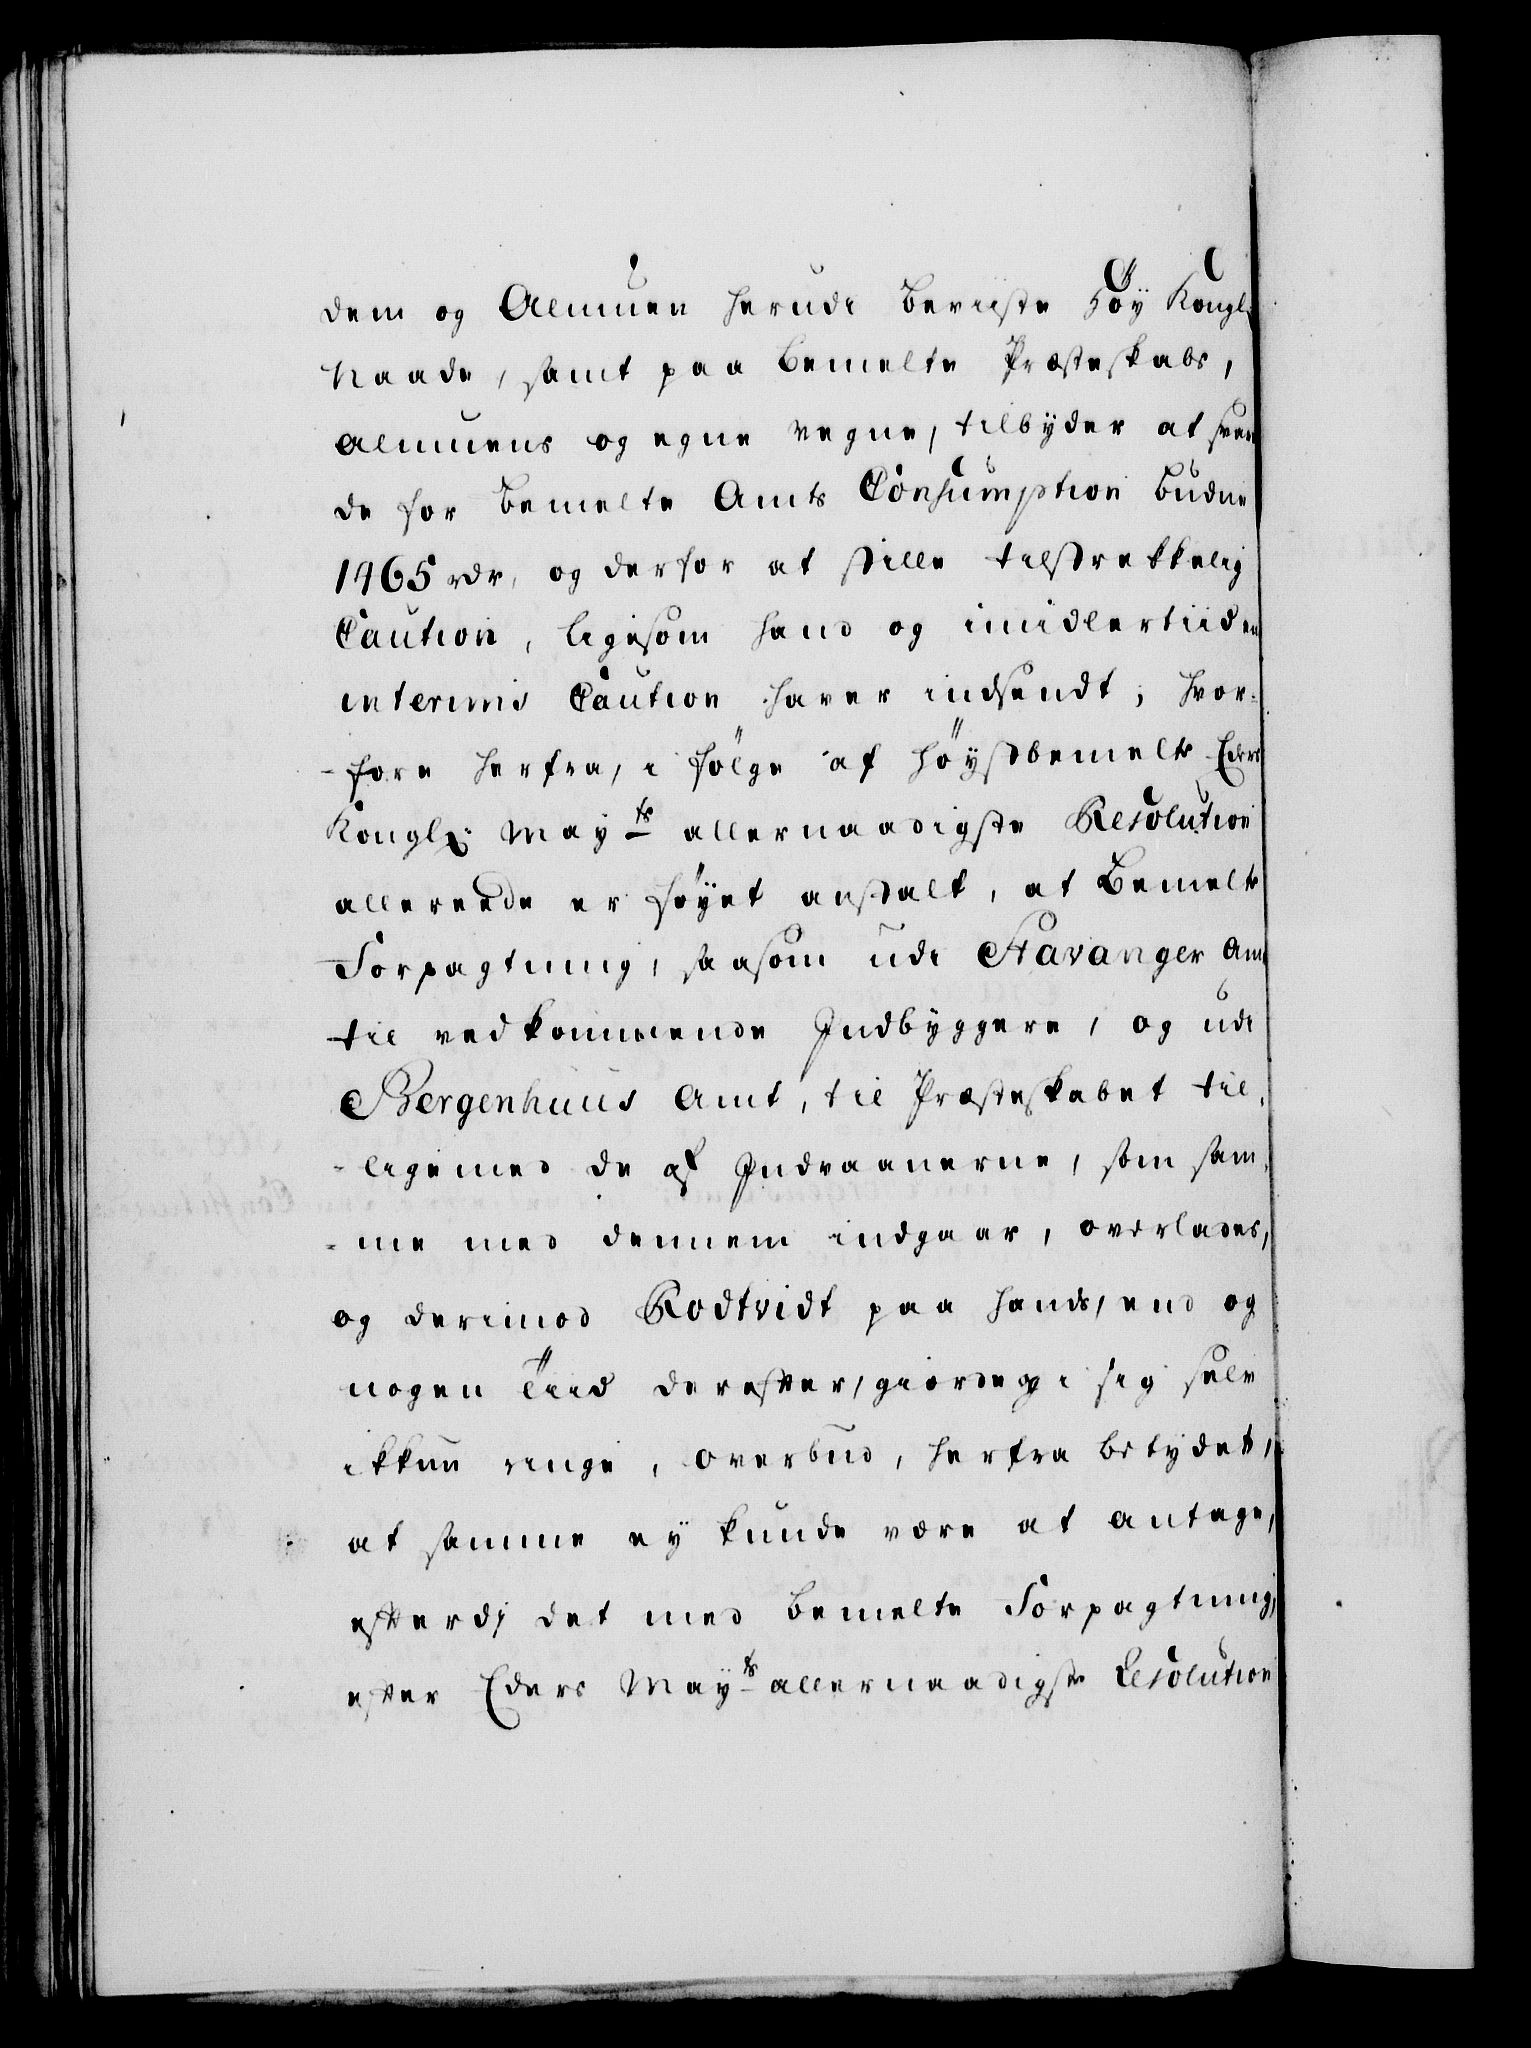 dem og Almuen herudi beviiste Høy Kongl.
Naade, samt paa bemelte Præsteskabs,
Almuens og egne vegne, tilbyder at sva-
de for bemelte Amts Consumption budne
1465 rdr, og derfor at stille tilstrekkelig
Caution, ligesom hand og imidlertiiden
interims Caution haver indsendt; hvor-
-fore herfra, i følge af høystbemelte Eders
Kongl: Mayts allernaadigste Resolution
allereede er føyet anstalt, at bemelte
Forpagtning, saasom udi Stavanger Amt
til vedkommende Indbyggere, og udi
Bergenhuus Amt, til Præsteskabet til-
-ligemed de af Indvaanerne, som sam-
-me med dennem indgaar, overlades,
og derimod Rodtvidt paa hands, end og
nogen Tiid derefter, giorde, i sig selv
ikkun ringe, overbud, herfra betydet,
at samme ey kunde være at antage,
efterdj det med bemelte Forpagtning,
efter Eders Mayts allernaadigste Resolution